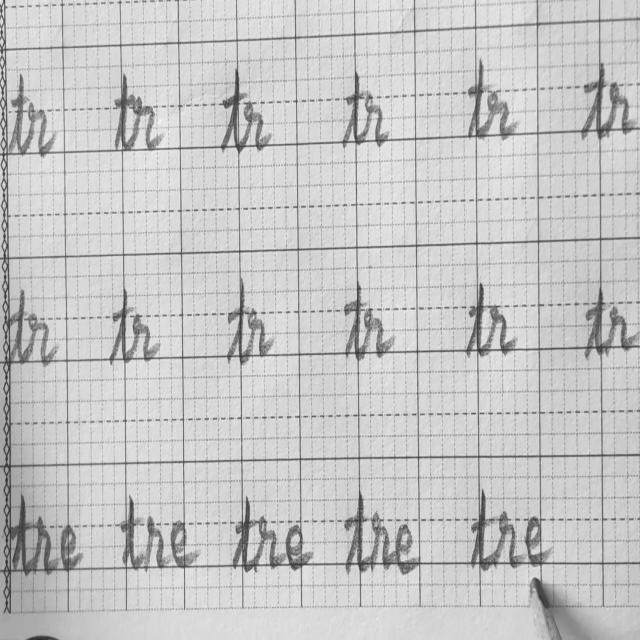 tr tr tr tr tr tr
tr tr tr tr tr tr
tre tre tre tre tre